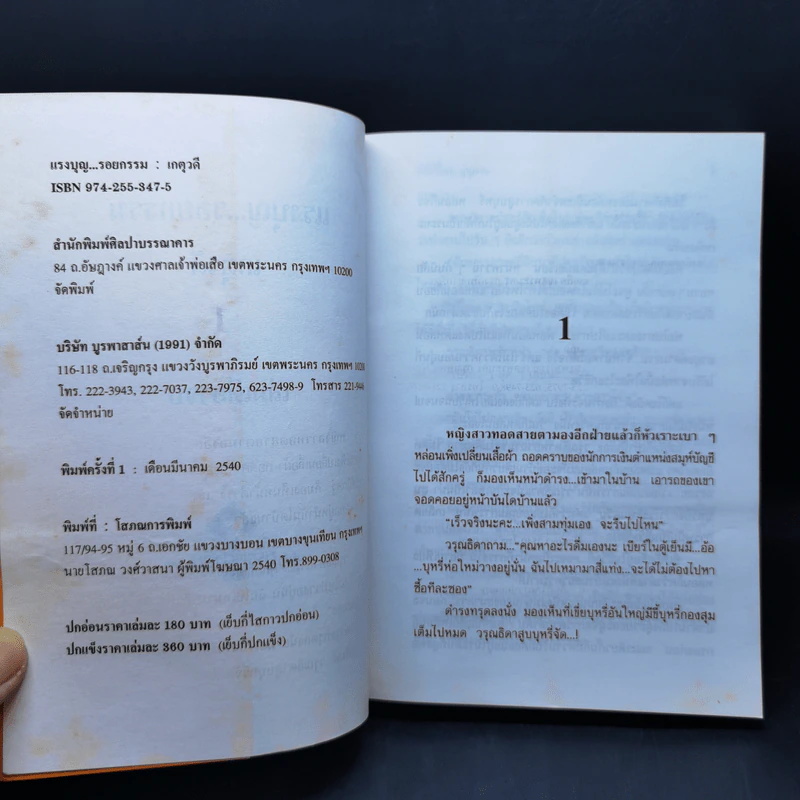 แรงบุญ...รอยกรรม : เกตุวดี
ISBN 974-255-347-5
สำนักพิมพ์ศิลปาบรรณาคาร
84 ถ.อัษฎางค์ แขวงศาลเจ้าพ่อเสือ เขตพระนคร กรุงเทพฯ 10200
จัดพิมพ์
บริษัท บูรพาสาส์น (1991) จำกัด
116-118 ถ.เจริญกรุง แขวงวังบูรพาภิรมย์ เขตพระนคร กรุงเทพฯ 10200
โทร. 222-3943, 222-7037, 223-7975, 623-7498-9 โทรสาร
จัดจำหน่าย
พิมพ์ครั้งที่ 1 : เดือนมีนาคม 2540
พิมพ์ที่ : โสภณการพิมพ์
117/94-95 หมู่ 6 ถ.เอกชัย แขวงบางบอน เขตบางขุนเทียน กรุงเทพฯ
นายโสภณ วงศ์วาสนา ผู้พิมพ์โฆษณา 2540 โทร.899-0308
ปกอ่อนราคาเล่มละ 180 บาท (เย็บกี่ไสกาวปกอ่อน)
ปกแข็งราคาเล่มละ 360 บาท (เย็บกี่ปกแข็ง)
1
หญิงสาวทอดสายตามองอีกฝ่ายแล้วก็หัวเราะเบา ๆ
หล่อนเพิ่งเปลี่ยนเสื้อผ้า ถอดคราบของนักการเงินตำแหน่งสมุห์บัญชี
ไปได้สักครู่ ก็มองเห็นหน้าดำรง...เข้ามาในบ้าน เอารถของเขา
จอดคอยอยู่หน้าบันไดบ้านแล้ว
“เร็วจริงนะคะ...เพิ่งสามทุ่มเอง จะรีบไปไหน”
วรุณธิดาถาม...“คุณหาอะไรดื่มเองนะ เบียร์ในตู้เย็นมี...อ้อ
...บุหรี่ห่อใหม่วางอยู่นั่น ฉันไปเหมามาสี่แท่ง...จะได้ไม่ต้องไปหา
ซื้อทีละซอง”
ดำรงทรุดลงนั่ง มองเห็นที่เขี่ยบุหรี่อันใหญ่มีขี้บุหรี่กองสุม
เต็มไปหมด วรุณธิดาสูบบุหรี่จัด...!